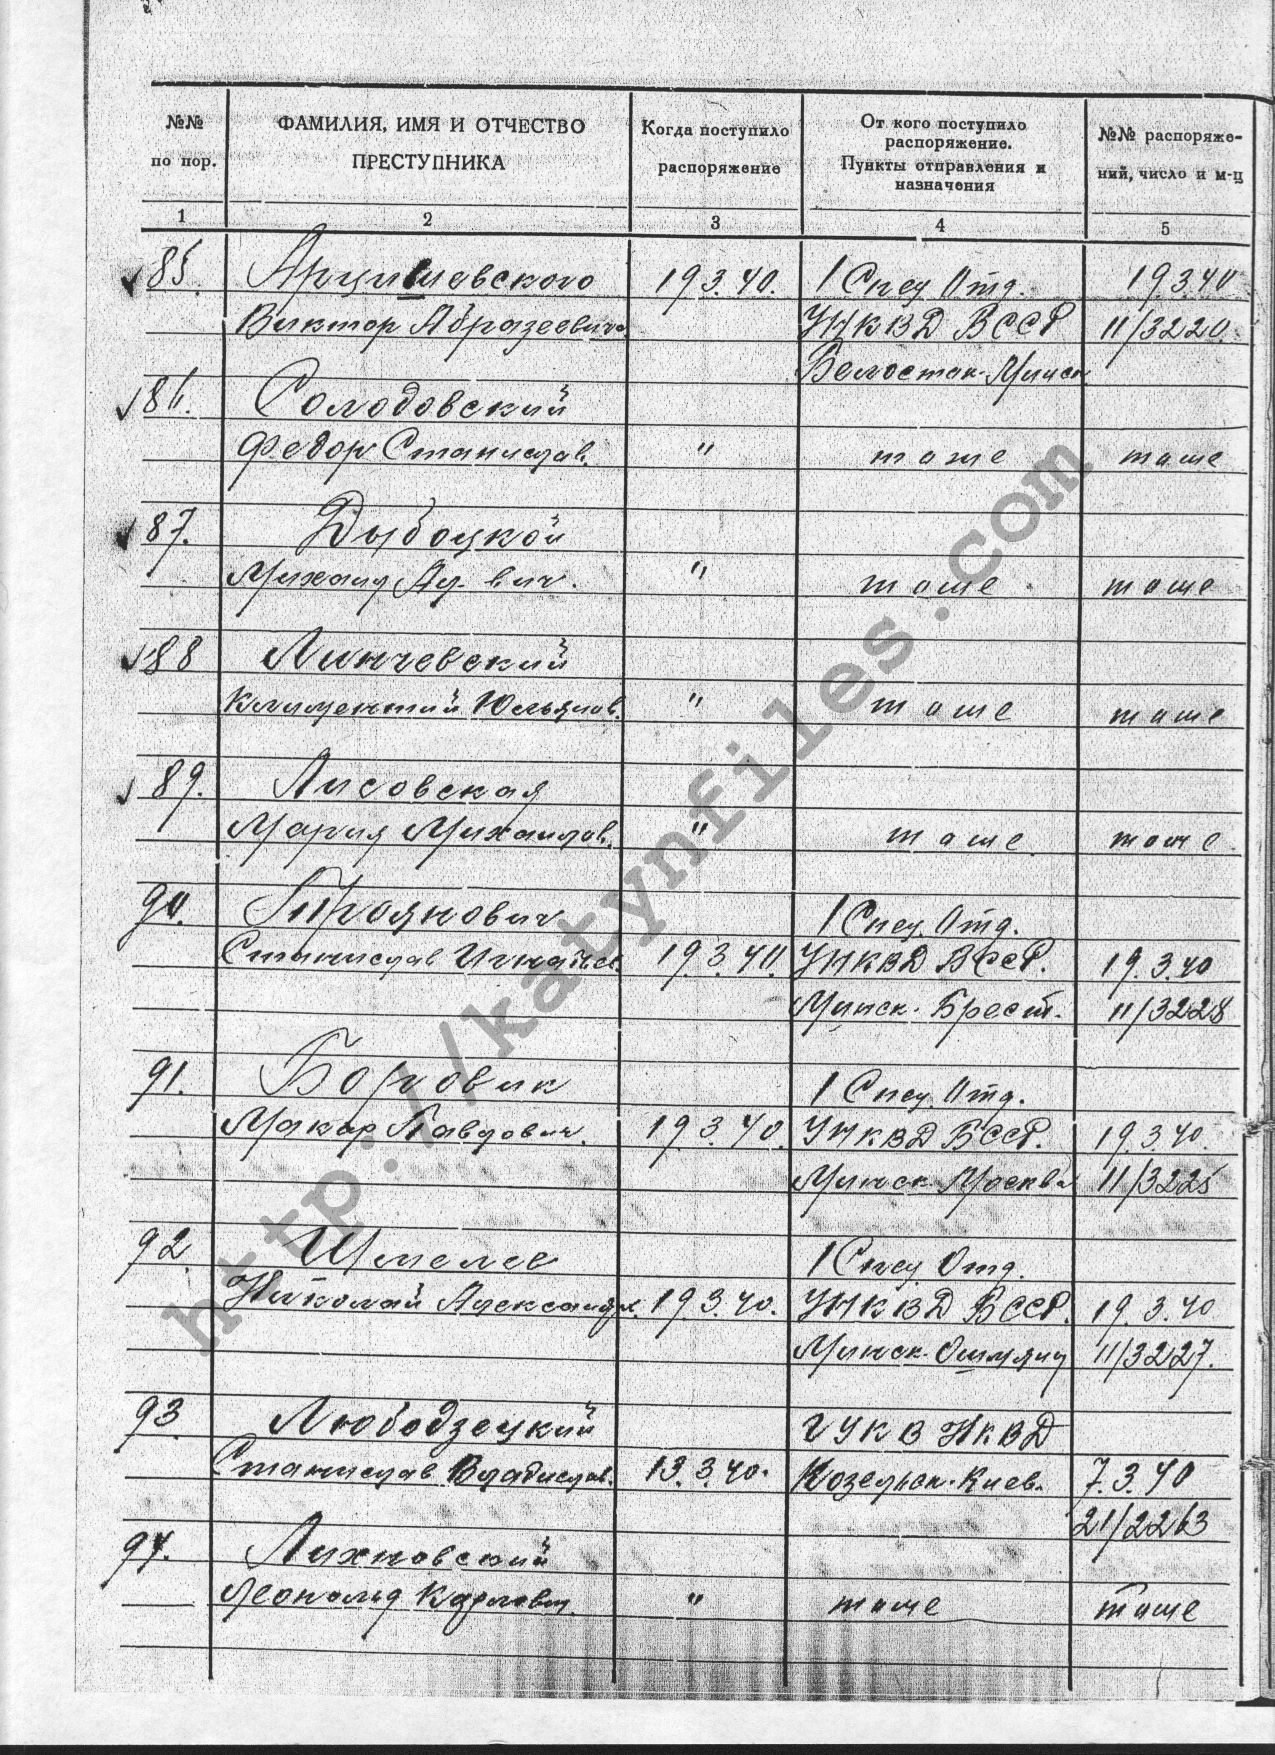 №№ по пор.
ФАМИЛИЯ, ИМЯ И ОТЧЕСТВО ПРЕСТУПНИКА
Когда поступило распоряжение
От кого поступило распоряжение. Пункты отправления и назначения
№№ распоряжений, число и м-ц
1 2 3 4 5
85. Арцишевского 19 3. 40. 1 Спец Отд. 19 3 40
Виктор УНКВД БССР 11/3220.
Белосток-Минск
86. Солодовский
Федор Станислав. " тоже тоже
87. Дыбоцкой
Михаил Ад. вич. " тоже тоже
88 Линчевский
Климентий Юльянов. " тоже тоже
89. Лисовская
Мария Михайлов. " тоже тоже
90. Троянович 1 Спец. Отд.
Станислав Игнатьев. 19. 3. 40. УНКВД БССР. 19. 3. 40
Минск-Брест. 11/3228
91. Боровик 1 Спец. Отд.
Макар Павлович. 19. 3. 40. УНКВД БССР. 19. 3 40.
Минск-Москва 11/3225
92. Шмелев 1 Спец Отд.
Николай Александр. 19. 3. 40. УНКВД БССР. 19. 3. 40
Минск-Ошмяны 11/3227.
93. Любодзецкий ГУКВ НКВД
Станислав Владислав. 13. 3. 40. Козельск-Киев. 7. 3. 40
21/2263
94. Лихновский
Леопольд Карлович. " тоже тоже
http://katynfiles.com